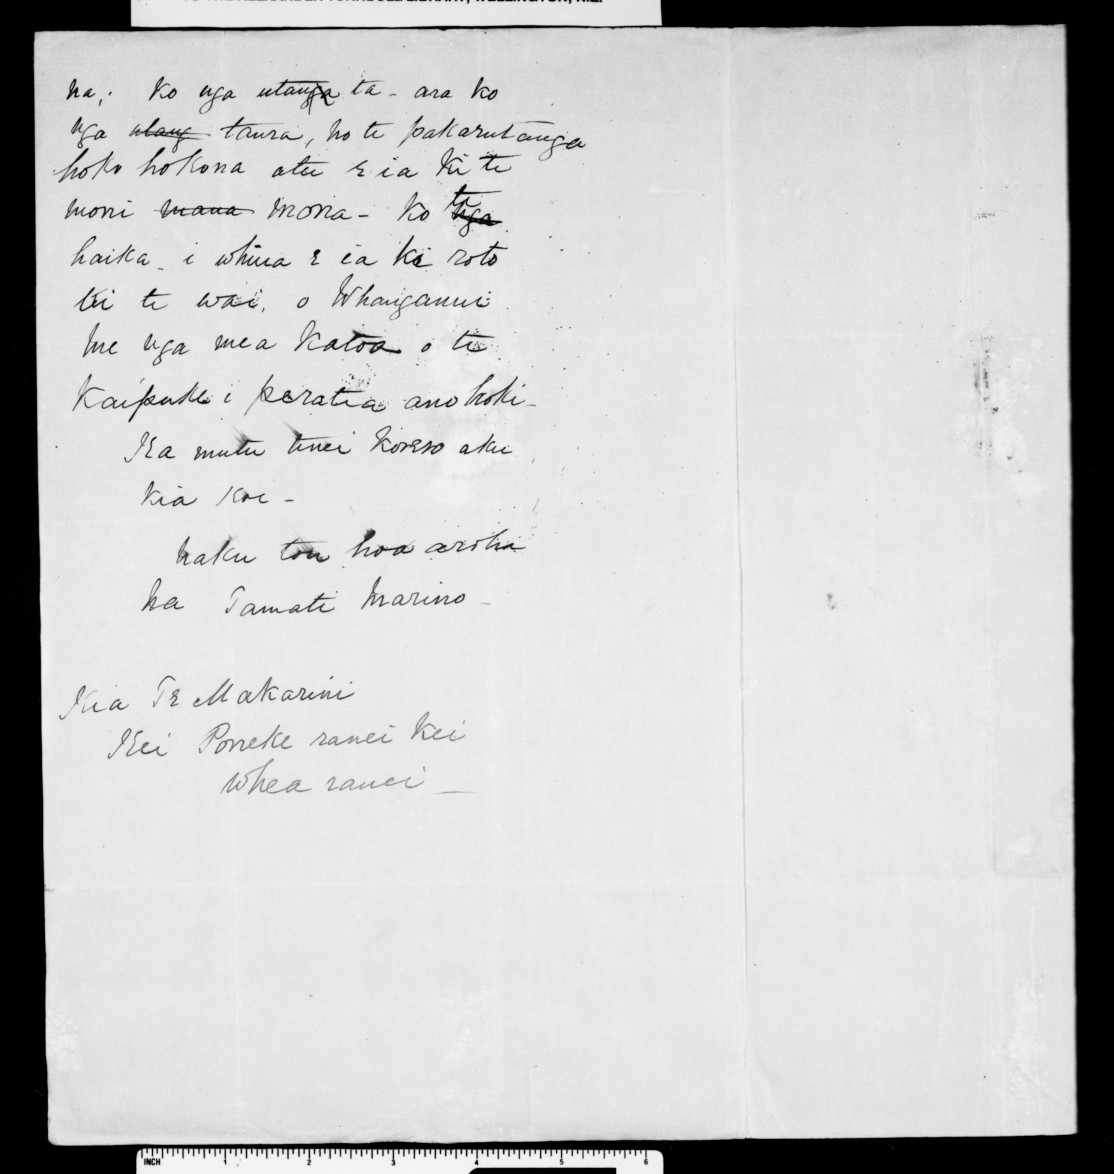 na; Ko nga utanga ta - ara ko
nga utang taura, no te pakarutanga
hoko hokona atu e ia ki te
moni mana mona - Ko te nga
haika - i whiua e ia ki roto
ki te wai, o Whanganui
me nga mea katoa o te
Kaipuke i peratia ano hoki -
Ka mutu tenei korero aku
kia koe -
Naku tou hoa aroha
Na Tamati Marino -
Kia Te Makarini
Kei Poneke ranei kei
whea ranei -
INCH 1 2 3 4 5 6